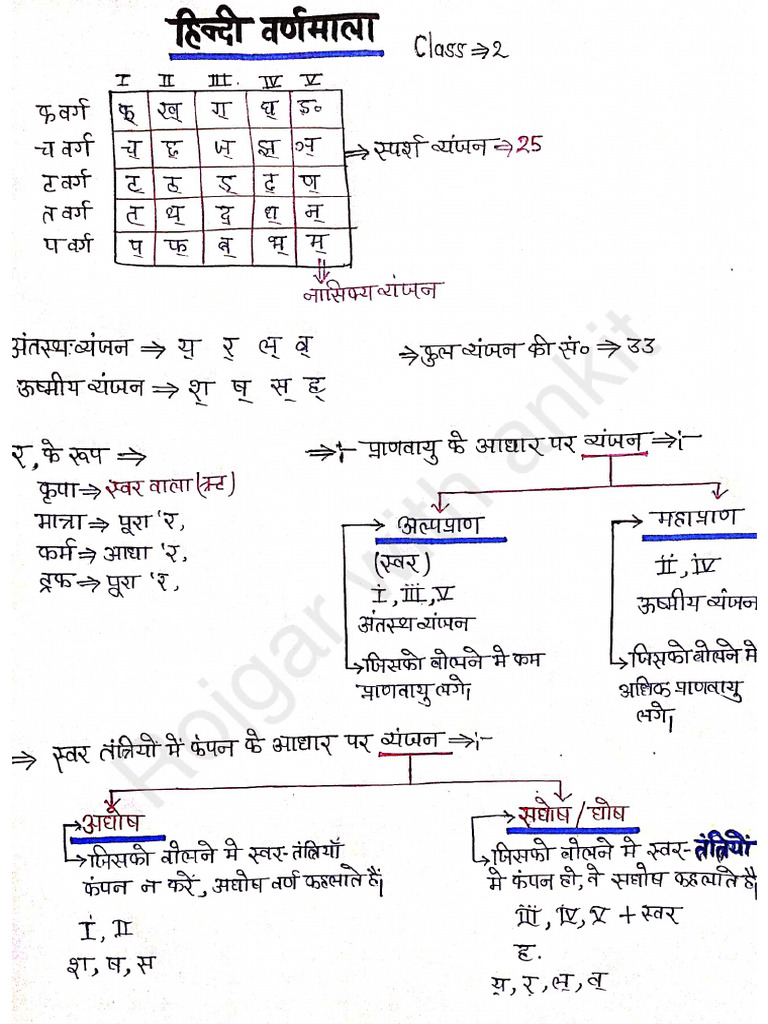 हिन्दी वर्णमाला
Class ⇒ 2
I II III. IV V
कवर्ग क् ख् ग् घ् ङ॰
चवर्ग च् छ् ज् झ् ञ् ⇒ स्पर्श व्यंजन ⇒ 25
टवर्ग ट् ठ् ड् ढ् ण्
तवर्ग त् थ् द् ध् न्
पवर्ग प् फ् ब् भ् म्
नासिक्य व्यंजन
अंतस्थ:व्यंजन ⇒ य् र् ल् व् ⇒ कुल व्यंजन की सं॰ ⇒ 33
ऊष्मीय व्यंजन ⇒ श् ष् स् ह्
र, के रूप ⇒
कृपा ⇒ स्वर वाला (ऋट)
मात्रा ⇒ पूरा 'र,
कर्म ⇒ आधा 'र,
ट्रक ⇒ पूरा 'र,
⇒ :- प्राणवायु के आधार पर व्यंजन ⇒ :-
अल्पप्राण
(स्वर)
I, III, V
अंतस्थ व्यंजन
जिसको बोलने मे कम
प्राणवायु लगे।
महाप्राण
II, IV
ऊष्मीय व्यंजन
जिसको बोलने मे
अधिक प्राणवायु
लगे।
⇒ स्वर तंत्रियों में कंपन के आधार पर व्यंजन ⇒ :-
अघोष
जिसको बोलने मे स्वर-तंत्रियाँ
कंपन न करें, अघोष वर्ण कहलाते हैं।
I, II
श, ष, स
सघोष / घोष
जिसको बोलने मे स्वर-तंत्रियों
मे कंपन हो, वे सघोष कहलाते है।
III, IV, V + स्वर
ह.
य्, र्, ल्, व्
Hojgar with ankit